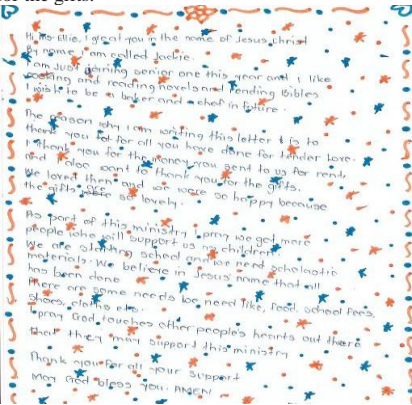 for the gifts.
Hi Ms Ellie, I greet you in the name of Jesus christ
By name I am called Jackie.
I am just joining senior one this year and I like
cooking and reading novels and reading Bibles
I wish to be a baker and a chef in future.
The reason why I am writing this letter is to
thank you for all you have done for Tender Love.
I thank you for the money you sent to us for rent,
and I also want to thank you for the gifts.
We loved them and we were so happy because
the gifts are so lovely.
As part of this ministry I pray we get more
people who will support us my children.
We are starting school and we need scholastic
materials. We believe in Jesus' name that all
has been done
There are some needs we need like, food, school fees,
shoes, cloths etc.
I pray God touches other people's hearts out there
that they may support this ministry
Thank you for all your support
May God bless you. AMEN